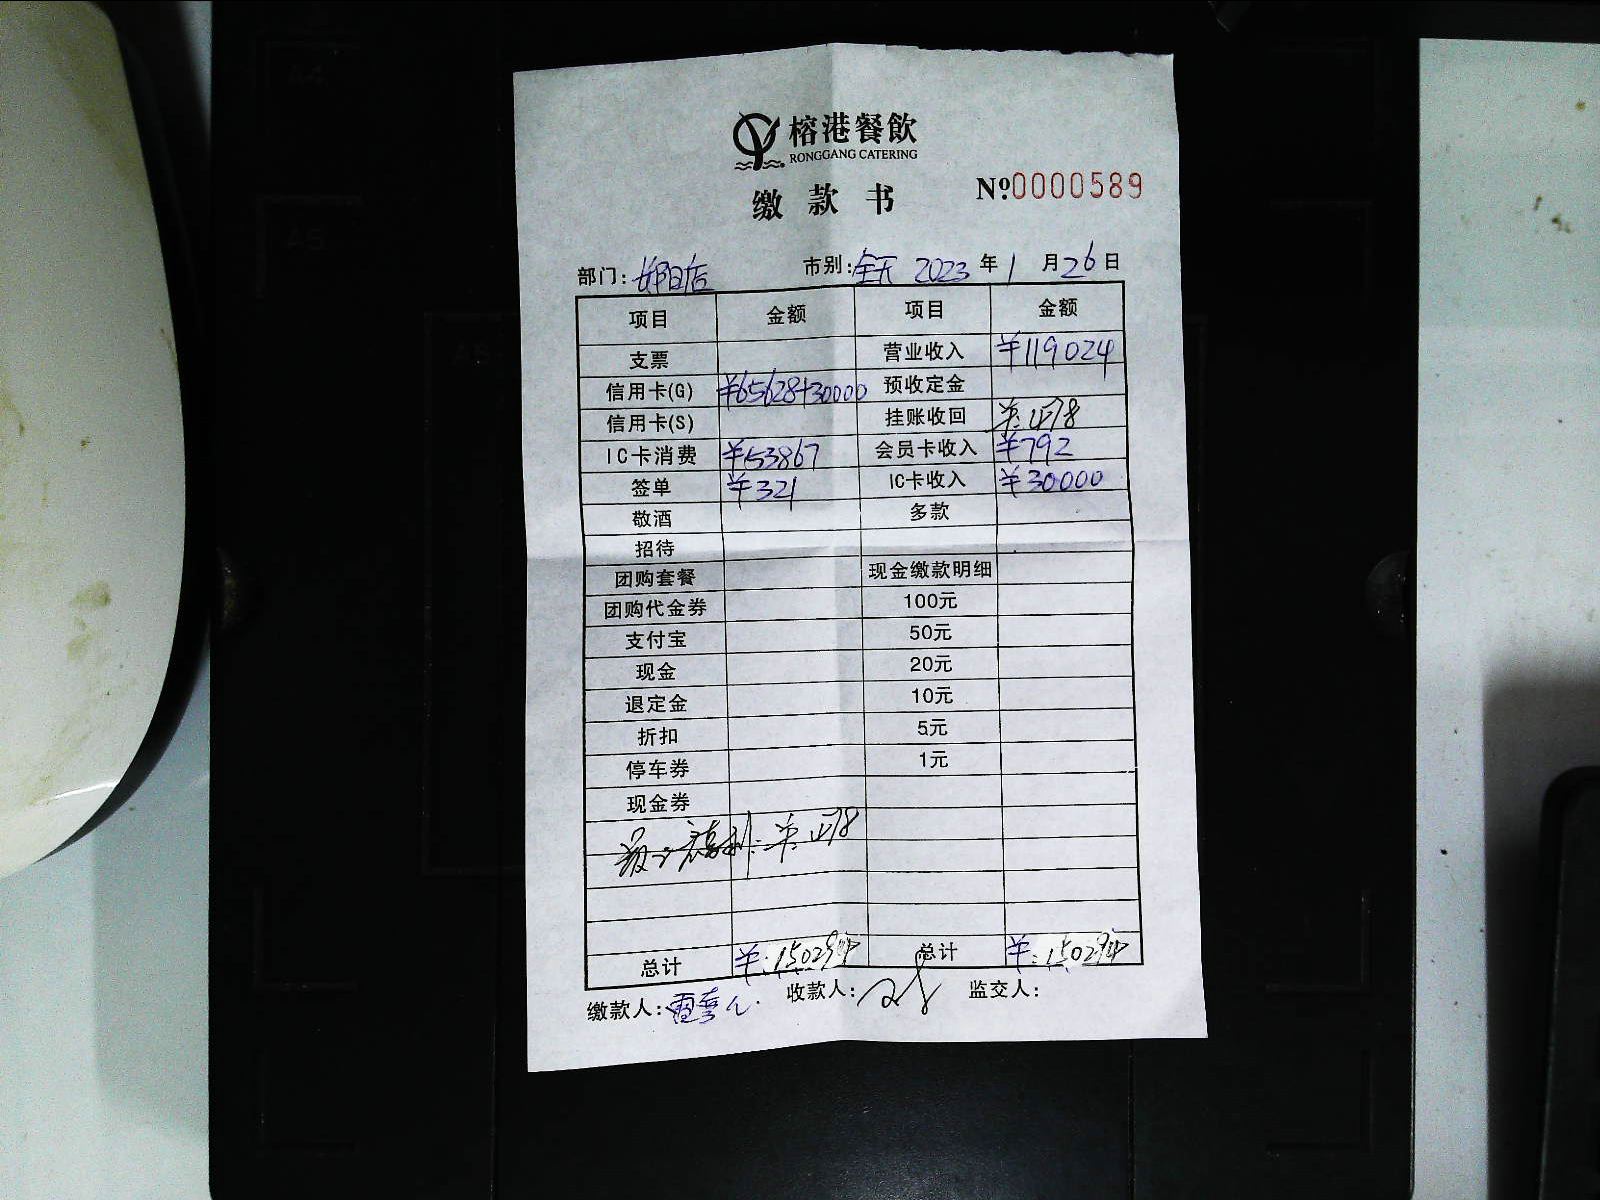 榕港餐飲
RONGGANG CATERING
缴款书
№0000589
部门: 市别:全天 2023年1月26日
项目 金额 项目 金额
支票 营业收入 ¥119024
信用卡(G) ¥65628+30000 预收定金
信用卡(S) 挂账收回 ¥:478
IC卡消费 ¥53867 会员卡收入 ¥792
签单 ¥321 IC卡收入 ¥30000
敬酒 多款
招待
团购套餐 现金缴款明细
团购代金券 100元
支付宝 50元
现金 20元
退定金 10元
折扣 5元
停车券 1元
现金券
¥:478
总计 ¥:150294 总计 ¥:150294
缴款人: 收款人: 监交人: